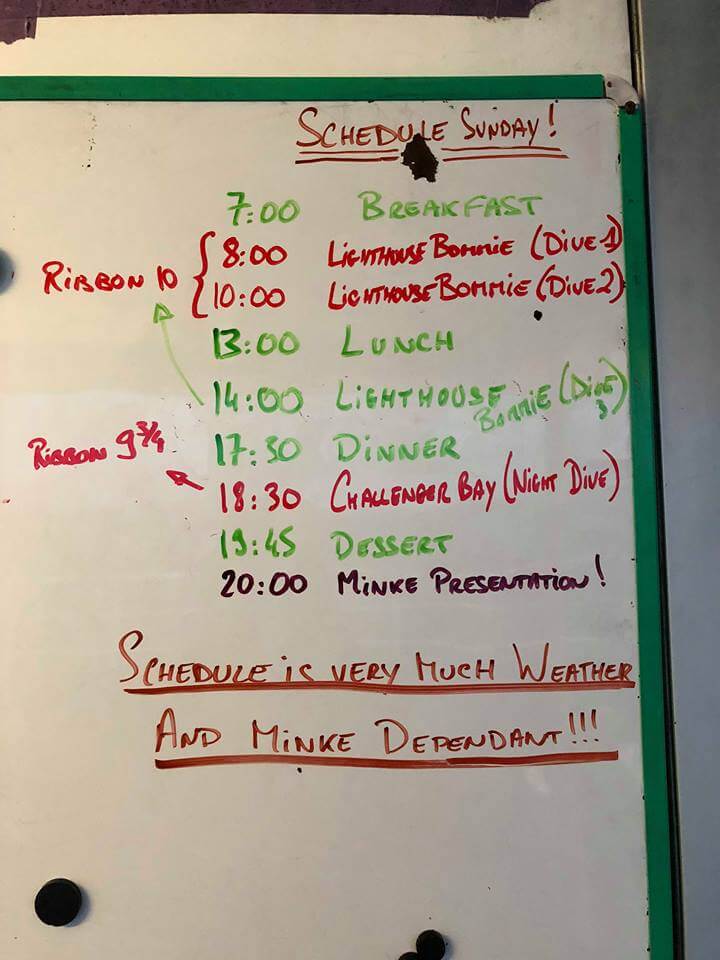 SCHEDULE SUNDAY!
7:00 BREAKFAST
8:00 LIGHTHOUSE BOMMIE (DIVE 1)
RIBBON 10
10:00 LIGHTHOUSE BOMMIE (DIVE 2)
13:00 LUNCH
14:00 LIGHTHOUSE BOMMIE (DIVE 3)
17:30 DINNER
RIBBON 9 3/4
18:30 CHALLENGER BAY (NIGHT DIVE)
19:45 DESSERT
20:00 MINKE PRESENTATION!
SCHEDULE IS VERY MUCH WEATHER
AND MINKE DEPENDANT!!!